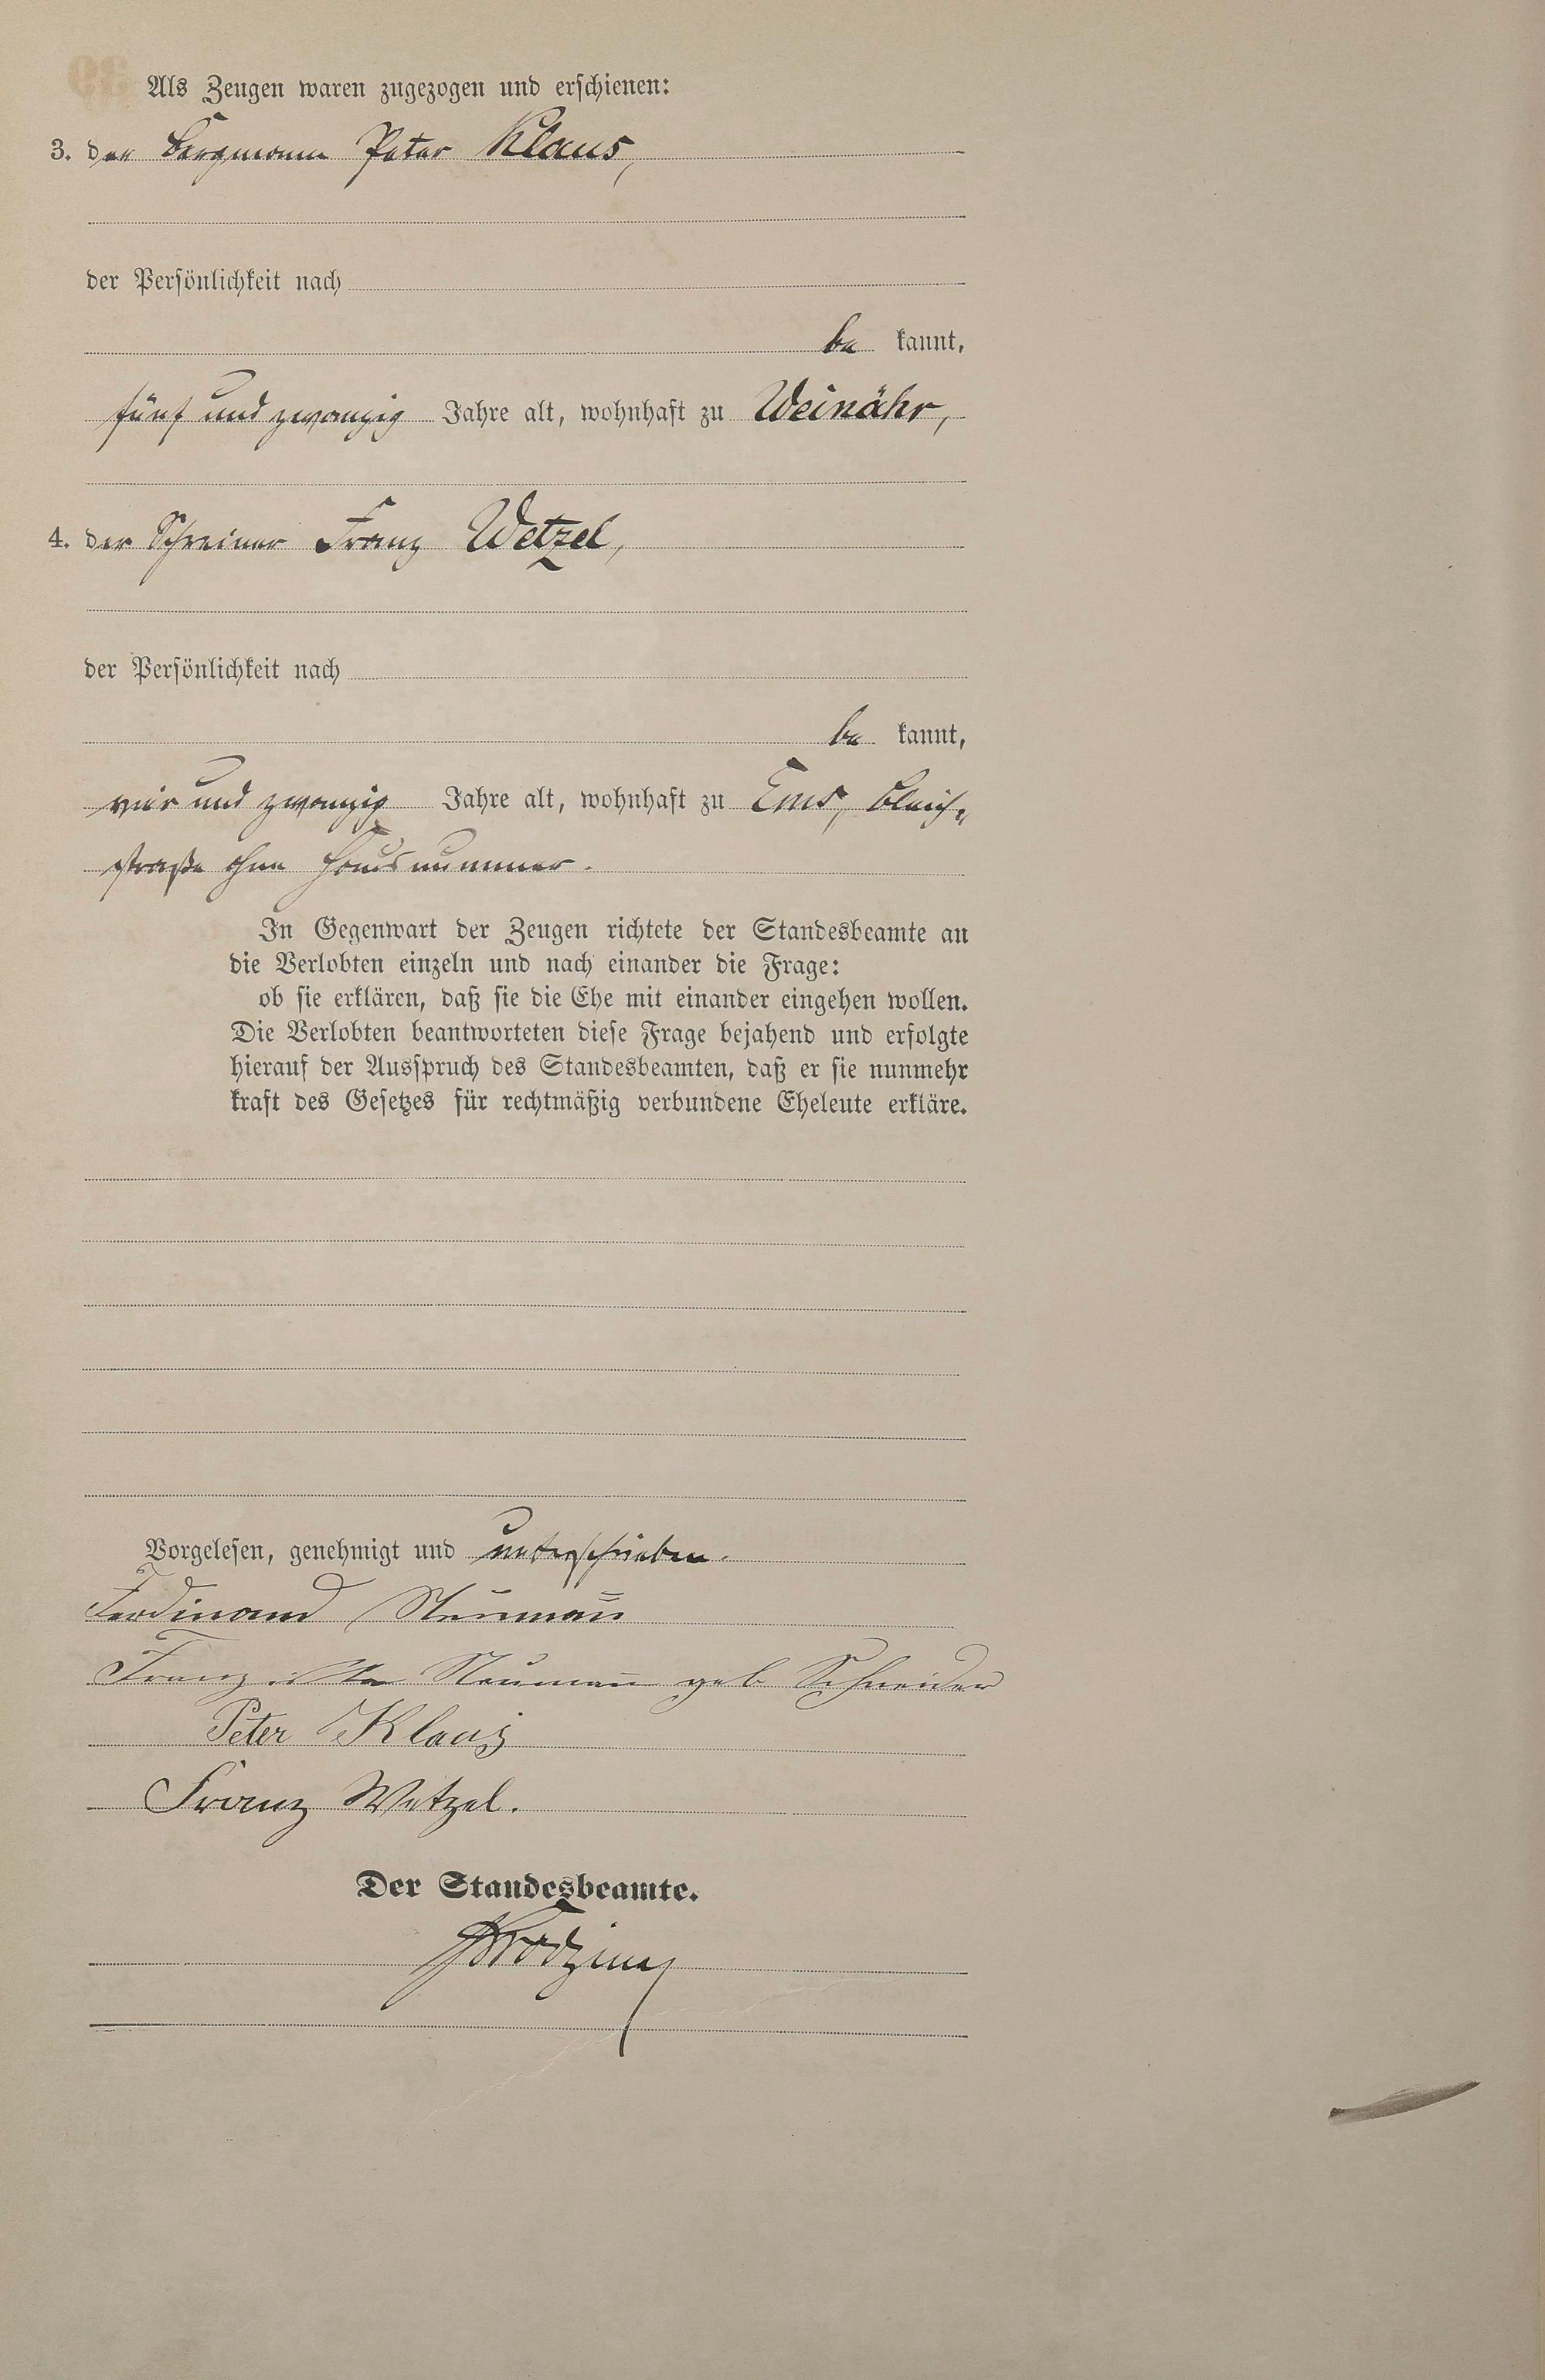 Als Zeugen waren zugezogen und erschienen:
3. der Bergmann Peter Klaus,
der Persönlichkeit nach
be kannt,
fünf und zwanzig Jahre alt, wohnhaft zu Weinähr,
4. der Schreiner Franz Wetzel,
der Persönlichkeit nach
be kannt,
vier und zwanzig Jahre alt, wohnhaft zu Ems, Bleich-
straße ohne Hausnummer.
In Gegenwart der Zeugen richtete der Standesbeamte an
die Verlobten einzeln und nach einander die Frage:
ob sie erklären, daß sie die Ehe mit einander eingehen wollen.
Die Verlobten beantworteten diese Frage bejahend und erfolgte
hierauf der Ausspruch des Standesbeamten, daß er sie nunmehr
kraft des Gesetzes für rechtmäßig verbundene Eheleute erkläre.
Vorgelesen, genehmigt und unterschrieben.
Ferdinand Neuman̄
Franziska Neuman̄ geb Schneider
Peter Klaus
Franz Wetzel.
Der Standesbeamte.